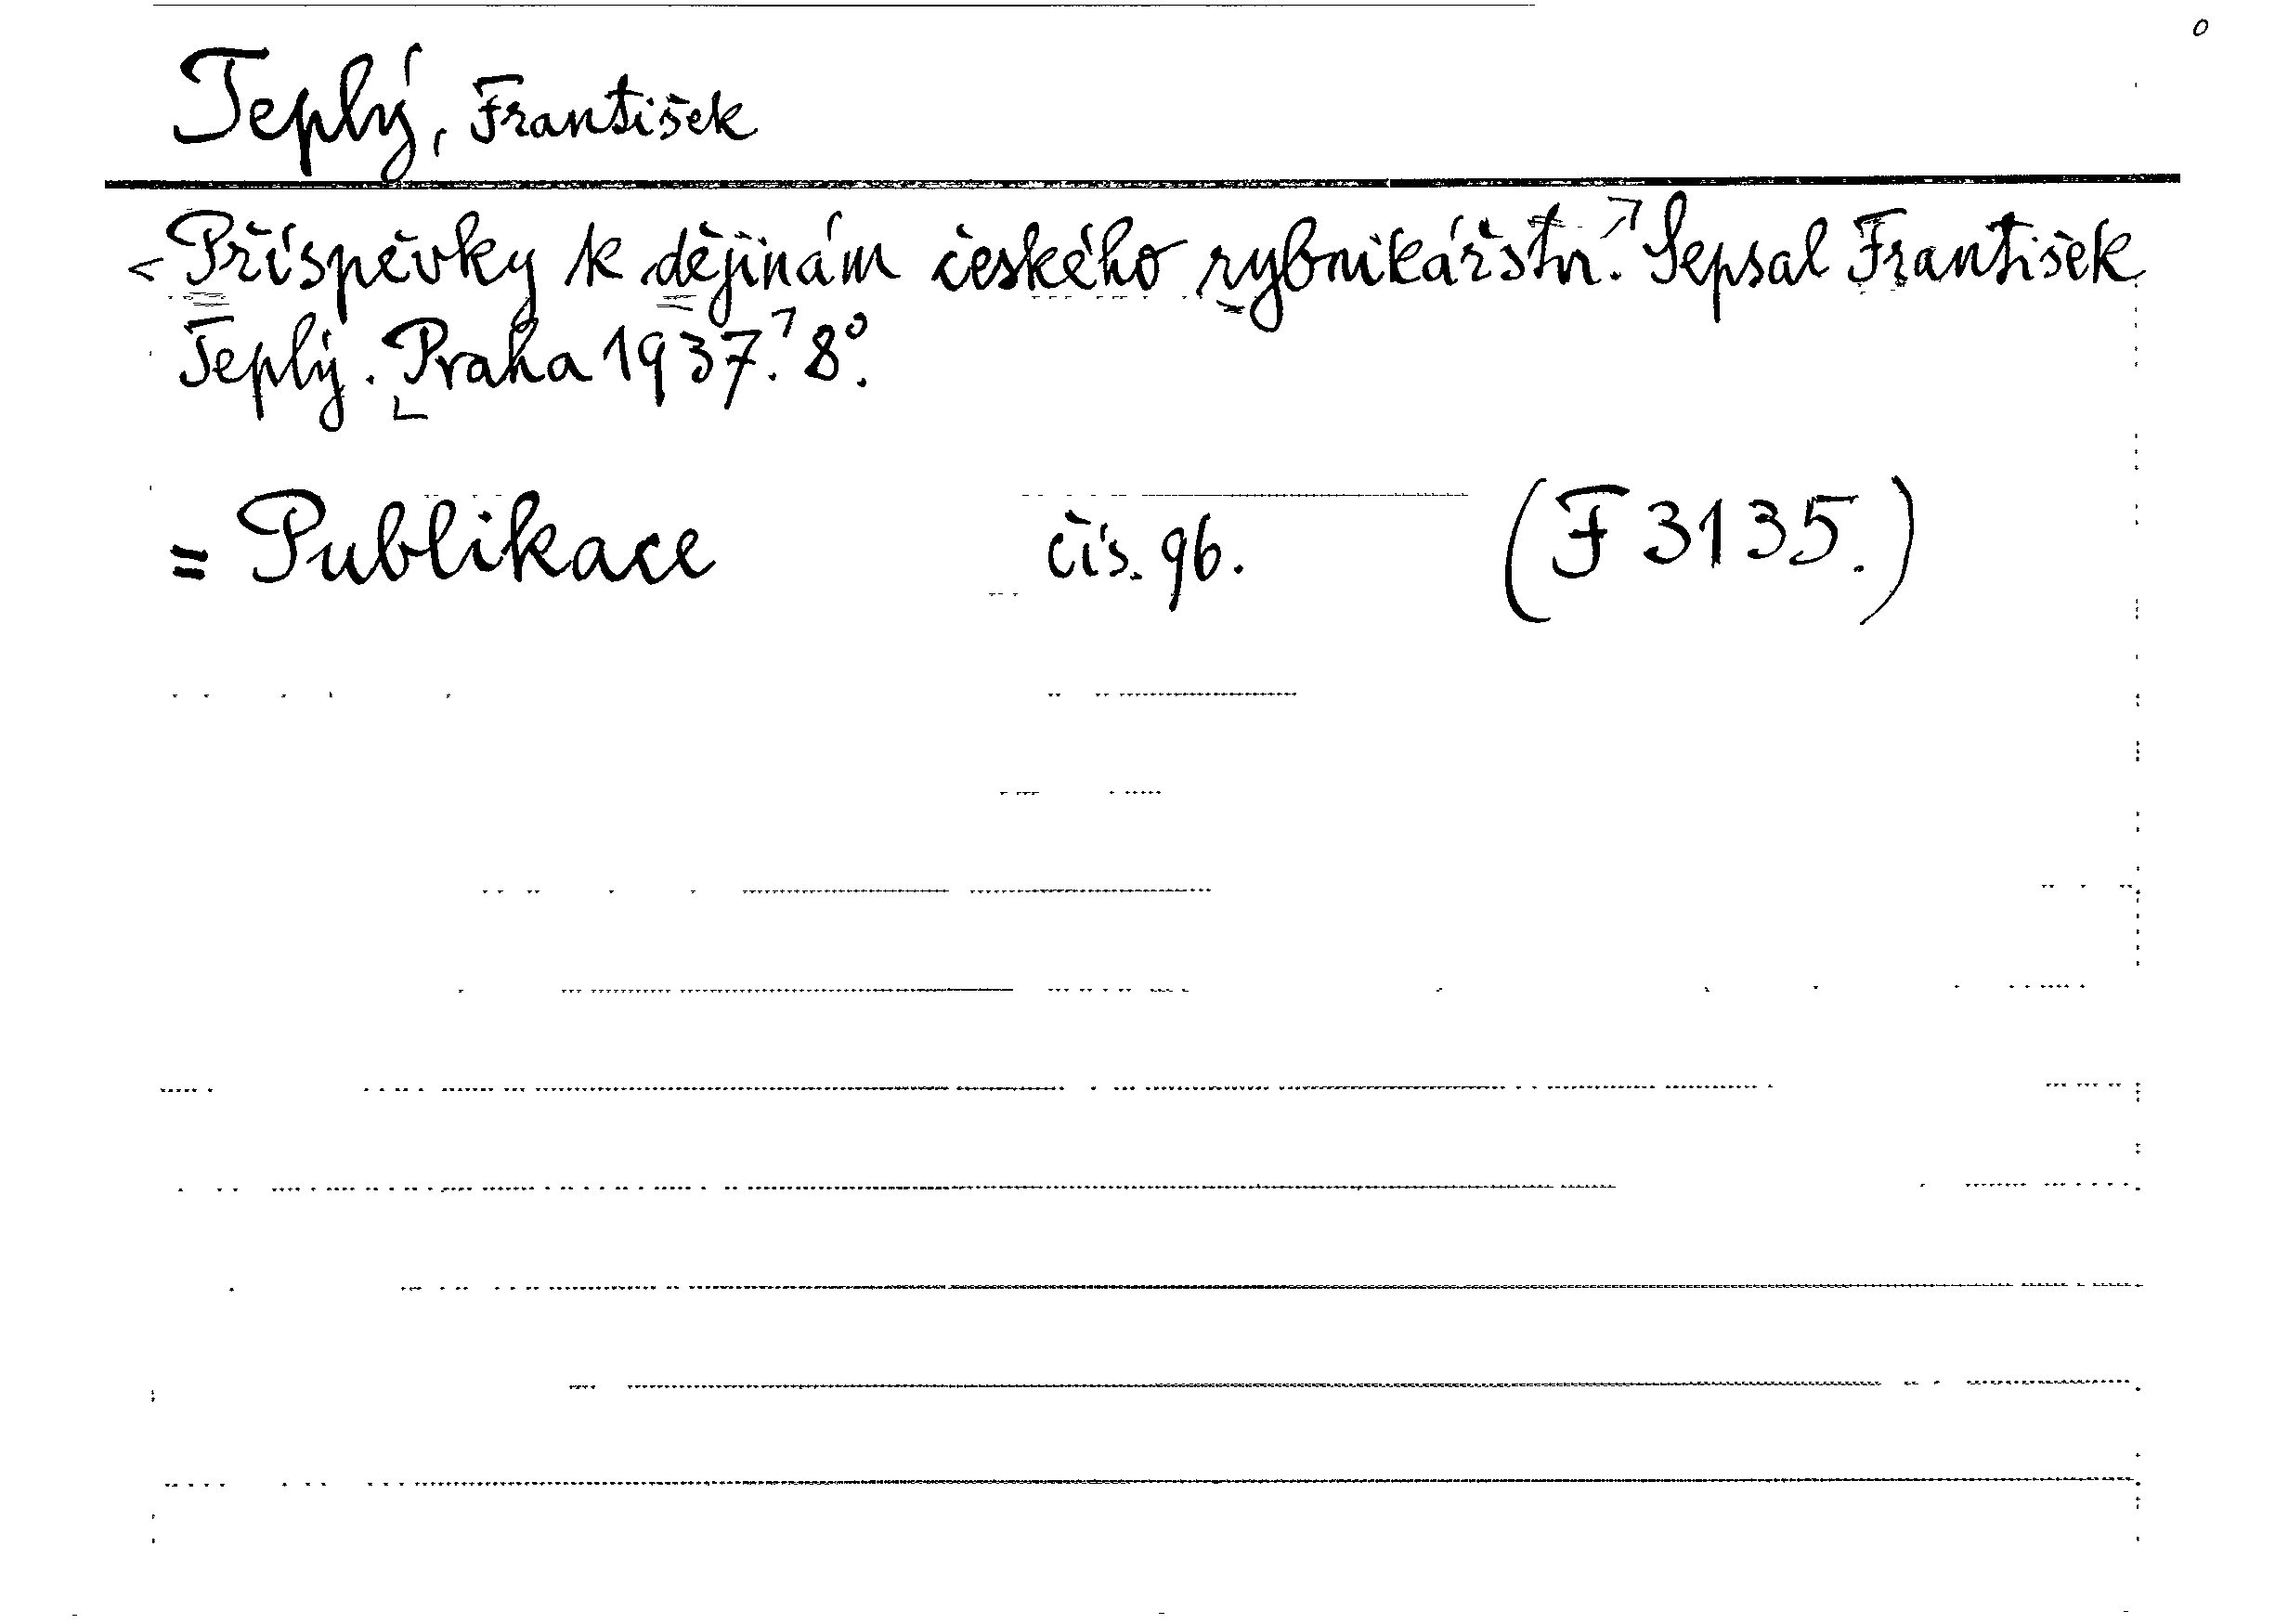 Teplý, František
Příspěvky k dějinám českého rybnikářství. Sepsal František
Teplý. Praha 1937. 8°.
= Publikace čís. 96. (F 3135.)